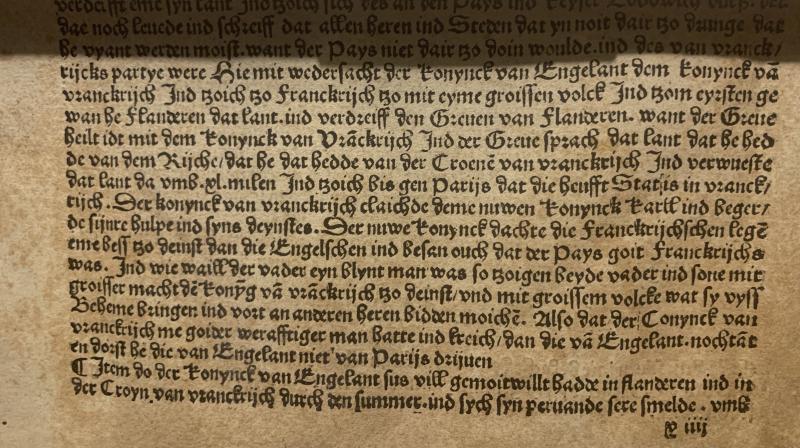 verdrifft eme syn lant Ind tzoich sich des an den Pays ind Keyser Lodowich
dae noch leuede ind schreiff dat allen heren ind Steden dat yn noit dair tzo drunge dat
he vyant werden moist. want der Pays niet dair tzo doin woulde. ind des van vranck/
rijcks partye were Hie mit wedersacht der Konynck van Engelant dem Konynck vā
vranckrijch Ind tzoich tzo Franckrijch tzo mit eyme groissen volck Ind tzom eyrsten ge
wan he Flanderen dat lant. ind verdreiff den Greuen van Flanderen. want der Greue
heilt idt mit dem Konynck van Vrāckrijch Ind der Greue sprach dat lant dat he hed
de van dem Rijche/dat he dat hedde van der Croenē van vranckrijch Ind verwueste
dat lant da vmb .xl. milen Ind tzoich bis gen Parijs dat die heufft Stat is in vranck/
rijch. Der konynck van vranckrijch claichde deme nuwen Konynck Karll ind beger/
de sijnre hulpe ind syns deynstes. Der nuwe Konynck dachte die Franckrijchschen legē
eme bess tzo deinst dan die Engelschen ind besan ouch dat der Pays goit Franckrijchs
was. Ind wie waill der vader eyn blynt man was so tzoigen beyde vader ind sone mit
groisser macht dē Konyg vā vrāckrijch tzo deinst/vnd mit groissem volcke wat sy vyss
Beheme bringen ind vort an anderen heren bidden moichē. Also dat der Conynck van
vranckrijch me goider werafftiger man hatte ind kreich/dan die vā Engelant. nochtāt
en dorst he die van Engelant niet van Parijs drijuen
¶ Item do der Konynck van Engelant sus vill gemoitwillt hadde in flanderen ind in
der Croyn van vranckrijch durch den summer. ind sych syn peruande sere smelde. vmb
iiii